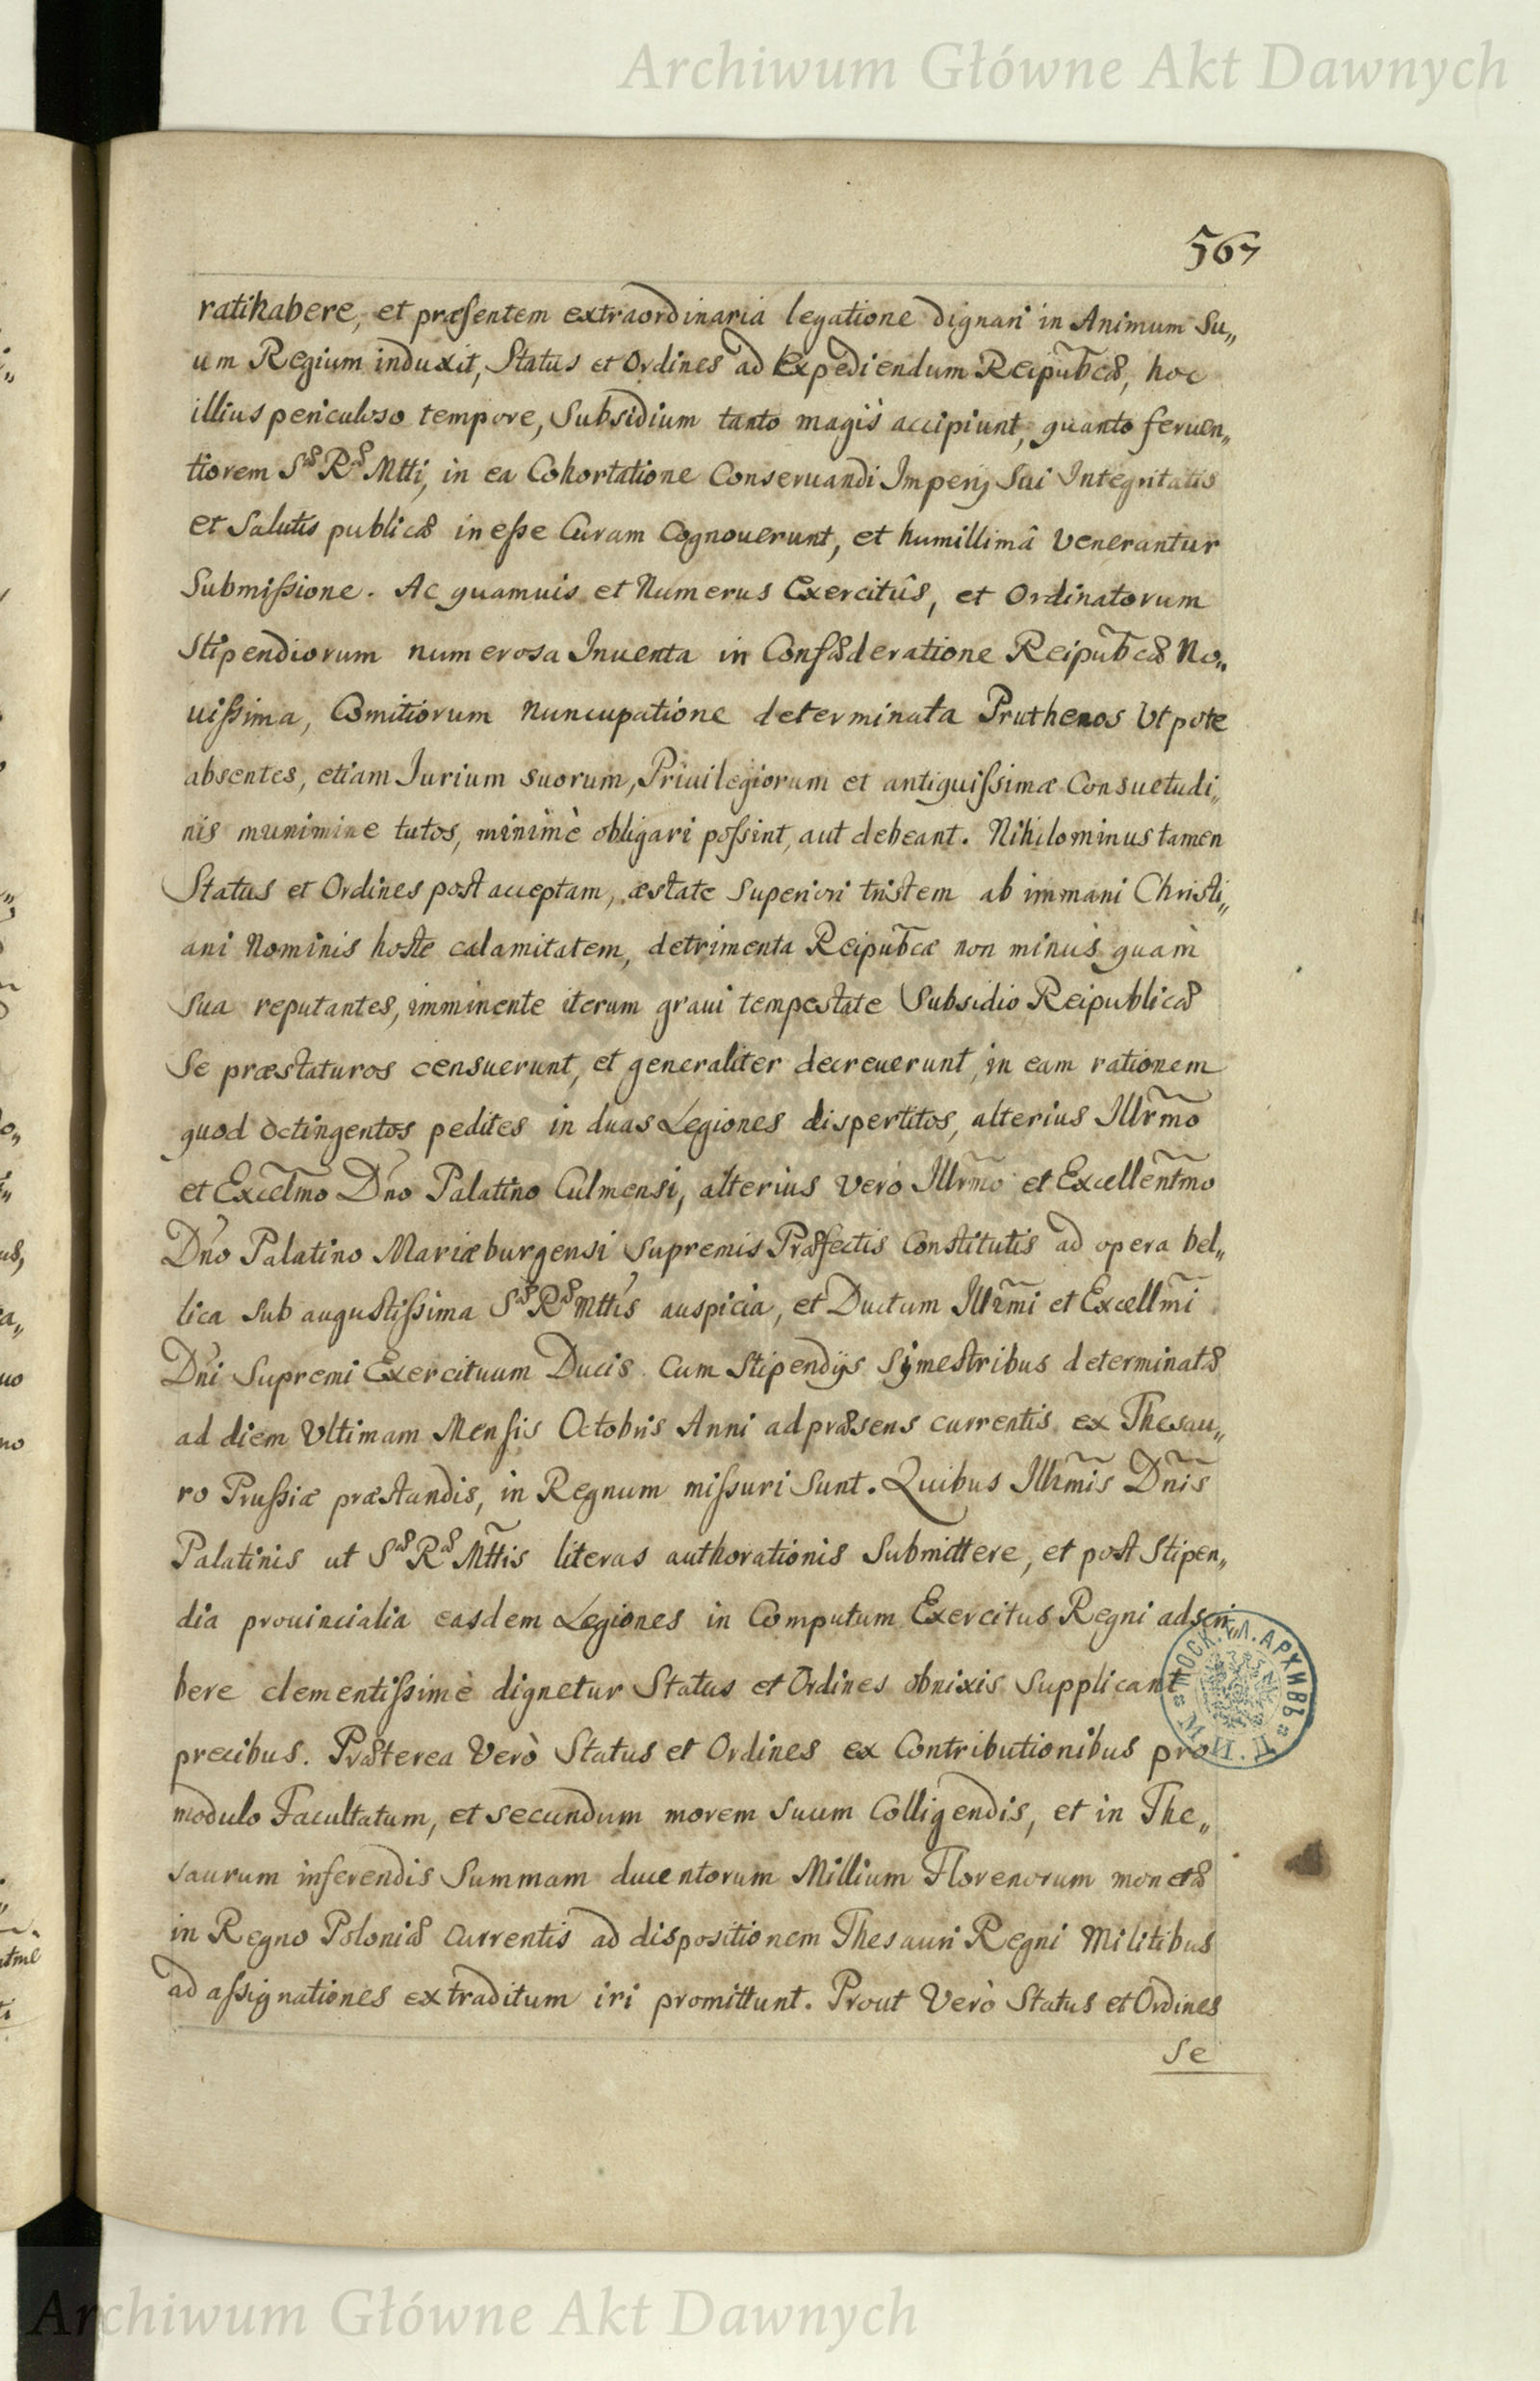 Archiwum Główne Akt Dawnych
567
ratihabere, et præsentem extraordinaria legatione dignari in Animum Su„
um Regium induxit, Status et Ordines ad Expediendum Reipub̃cæ, hoc
illius periculoso tempore, Subsidium tanto magis accipiunt, quanto feruen„
tiorem Sæ Ræ Mtti, in ea Cohortatione Conseruandi Imperij Sui Integritatis
et Salutis publicæ inesse Curam Cognouerunt, et humillimâ venerantur
Submissione. Ac quamuis et Numerus Exercitûs, et Ordinatorum
Stipendiorum numerosa Inuenta in Confæderatione Reipub̃cæ No„
uissima, Comitiorum nuncupatione determinata Pruthenos Utpote
absentes, etiam Jurium suorum, Priuilegiorum et antiquissimæ Consuetudi„
nis munimine tutos, minimè obligari possint, aut debeant. Nihilominus tamen
Status et Ordines post acceptam, æstate Superiori tristem ab immani Christi„
ani Nominis hoste calamitatem, detrimenta Reipub̃cæ non minùs quàm
Sua reputantes, imminente iterum graui tempestate Subsidio Reipublicæ
Se præstaturos censuerunt, et generaliter decreuerunt, in eam rationem
quod octingentos pedites in duas Legiones dispertitos, alterius Illr̃mo
et Excel̃mo Dño Palatino Culmensi, alterius verò Illr̃mo et Excellent̃mo
Dño Palatino Mariæburgensi Supremis Præfectis Constitutis ad opera bel„
lica sub augustissima Sæ Ræ Mttis auspicia, et Ductum Illr̃mi et Excell̃mi
Dñi Supremi Exercituum Ducis Cum Stipendijs Sijmestribus determinatæ
ad diem Ultimam Mensis Octobris Anni ad præsens currentis ex Thesau„
ro Prussiæ præstandis, in Regnum missuri Sunt. Quibus Illr̃mis Dñis
Palatinis ut Sæ Ræ Mttis literas authorationis Submittere, et post Stipen„
dia prouincialia easdem Legiones in Computum Exercitus Regni adscri„
bere clementissimè dignetur Status et Ordines obnixis Supplicant
precibus. Præterea Verò Status et Ordines ex Contributionibus pro
modulo Facultatum, et secundum morem Suum Colligendis, et in The„
saurum inferendis Summam ducentorum Millium Florenorum monetæ
in Regno Poloniæ Currentis ad dispositionem Thesauri Regni Militibus
ad assignationes extraditum iri promittunt. Prout Verò Status et Ordines
Se
Archiwum Główne Akt Dawnych